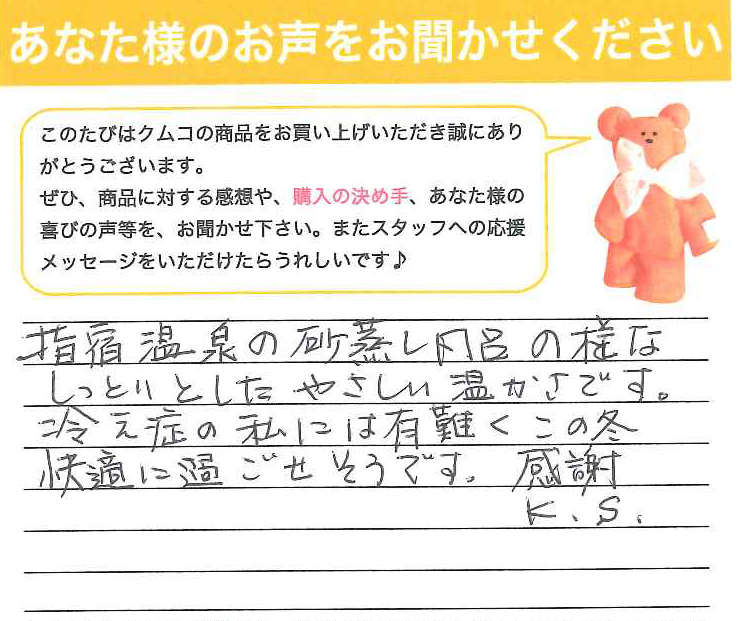 あなた様のお声をお聞かせください
このたびはクムコの商品をお買い上げいただき誠にあり
がとうございます。
ぜひ、商品に対する感想や、購入の決め手、あなた様の
喜びの声等を、お聞かせ下さい。またスタッフへの応援
メッセージをいただけたらうれしいです♪
指宿温泉の砂蒸し風呂の様な
しっとりとしたやさしい温かさです。
冷え症の私には有難くこの冬
快適に過ごせそうです。感謝
K.S.